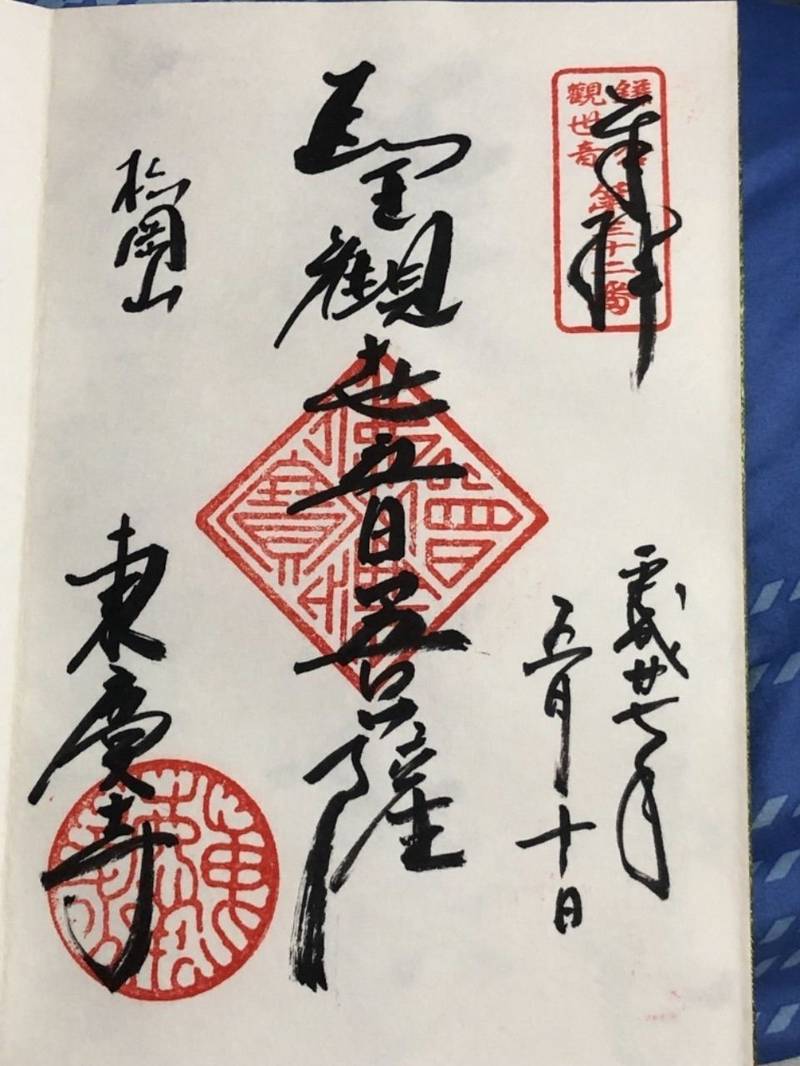 奉拜
鎌倉
觀世音
第三十二番
平成廿七年
五月十日
聖觀世音菩薩
松岡山
東慶寺